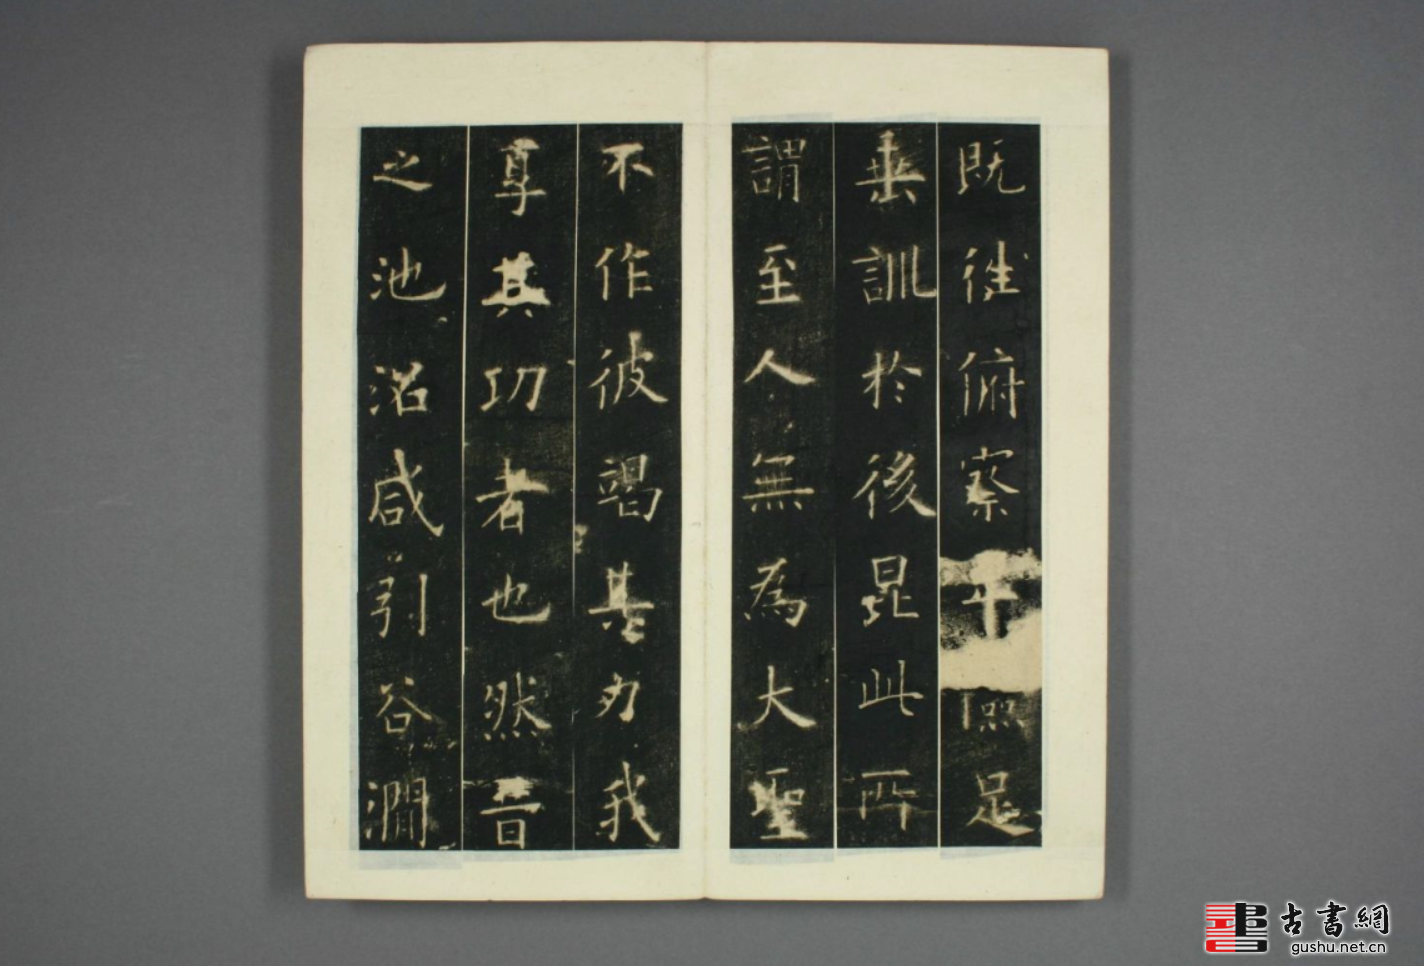 既往俯察平凞足
垂訓於後昆此所
謂至人無為大聖
不作彼竭其力我
享其功者也然昔
之池沼咸引谷澗
古書網
gushu.net.cn